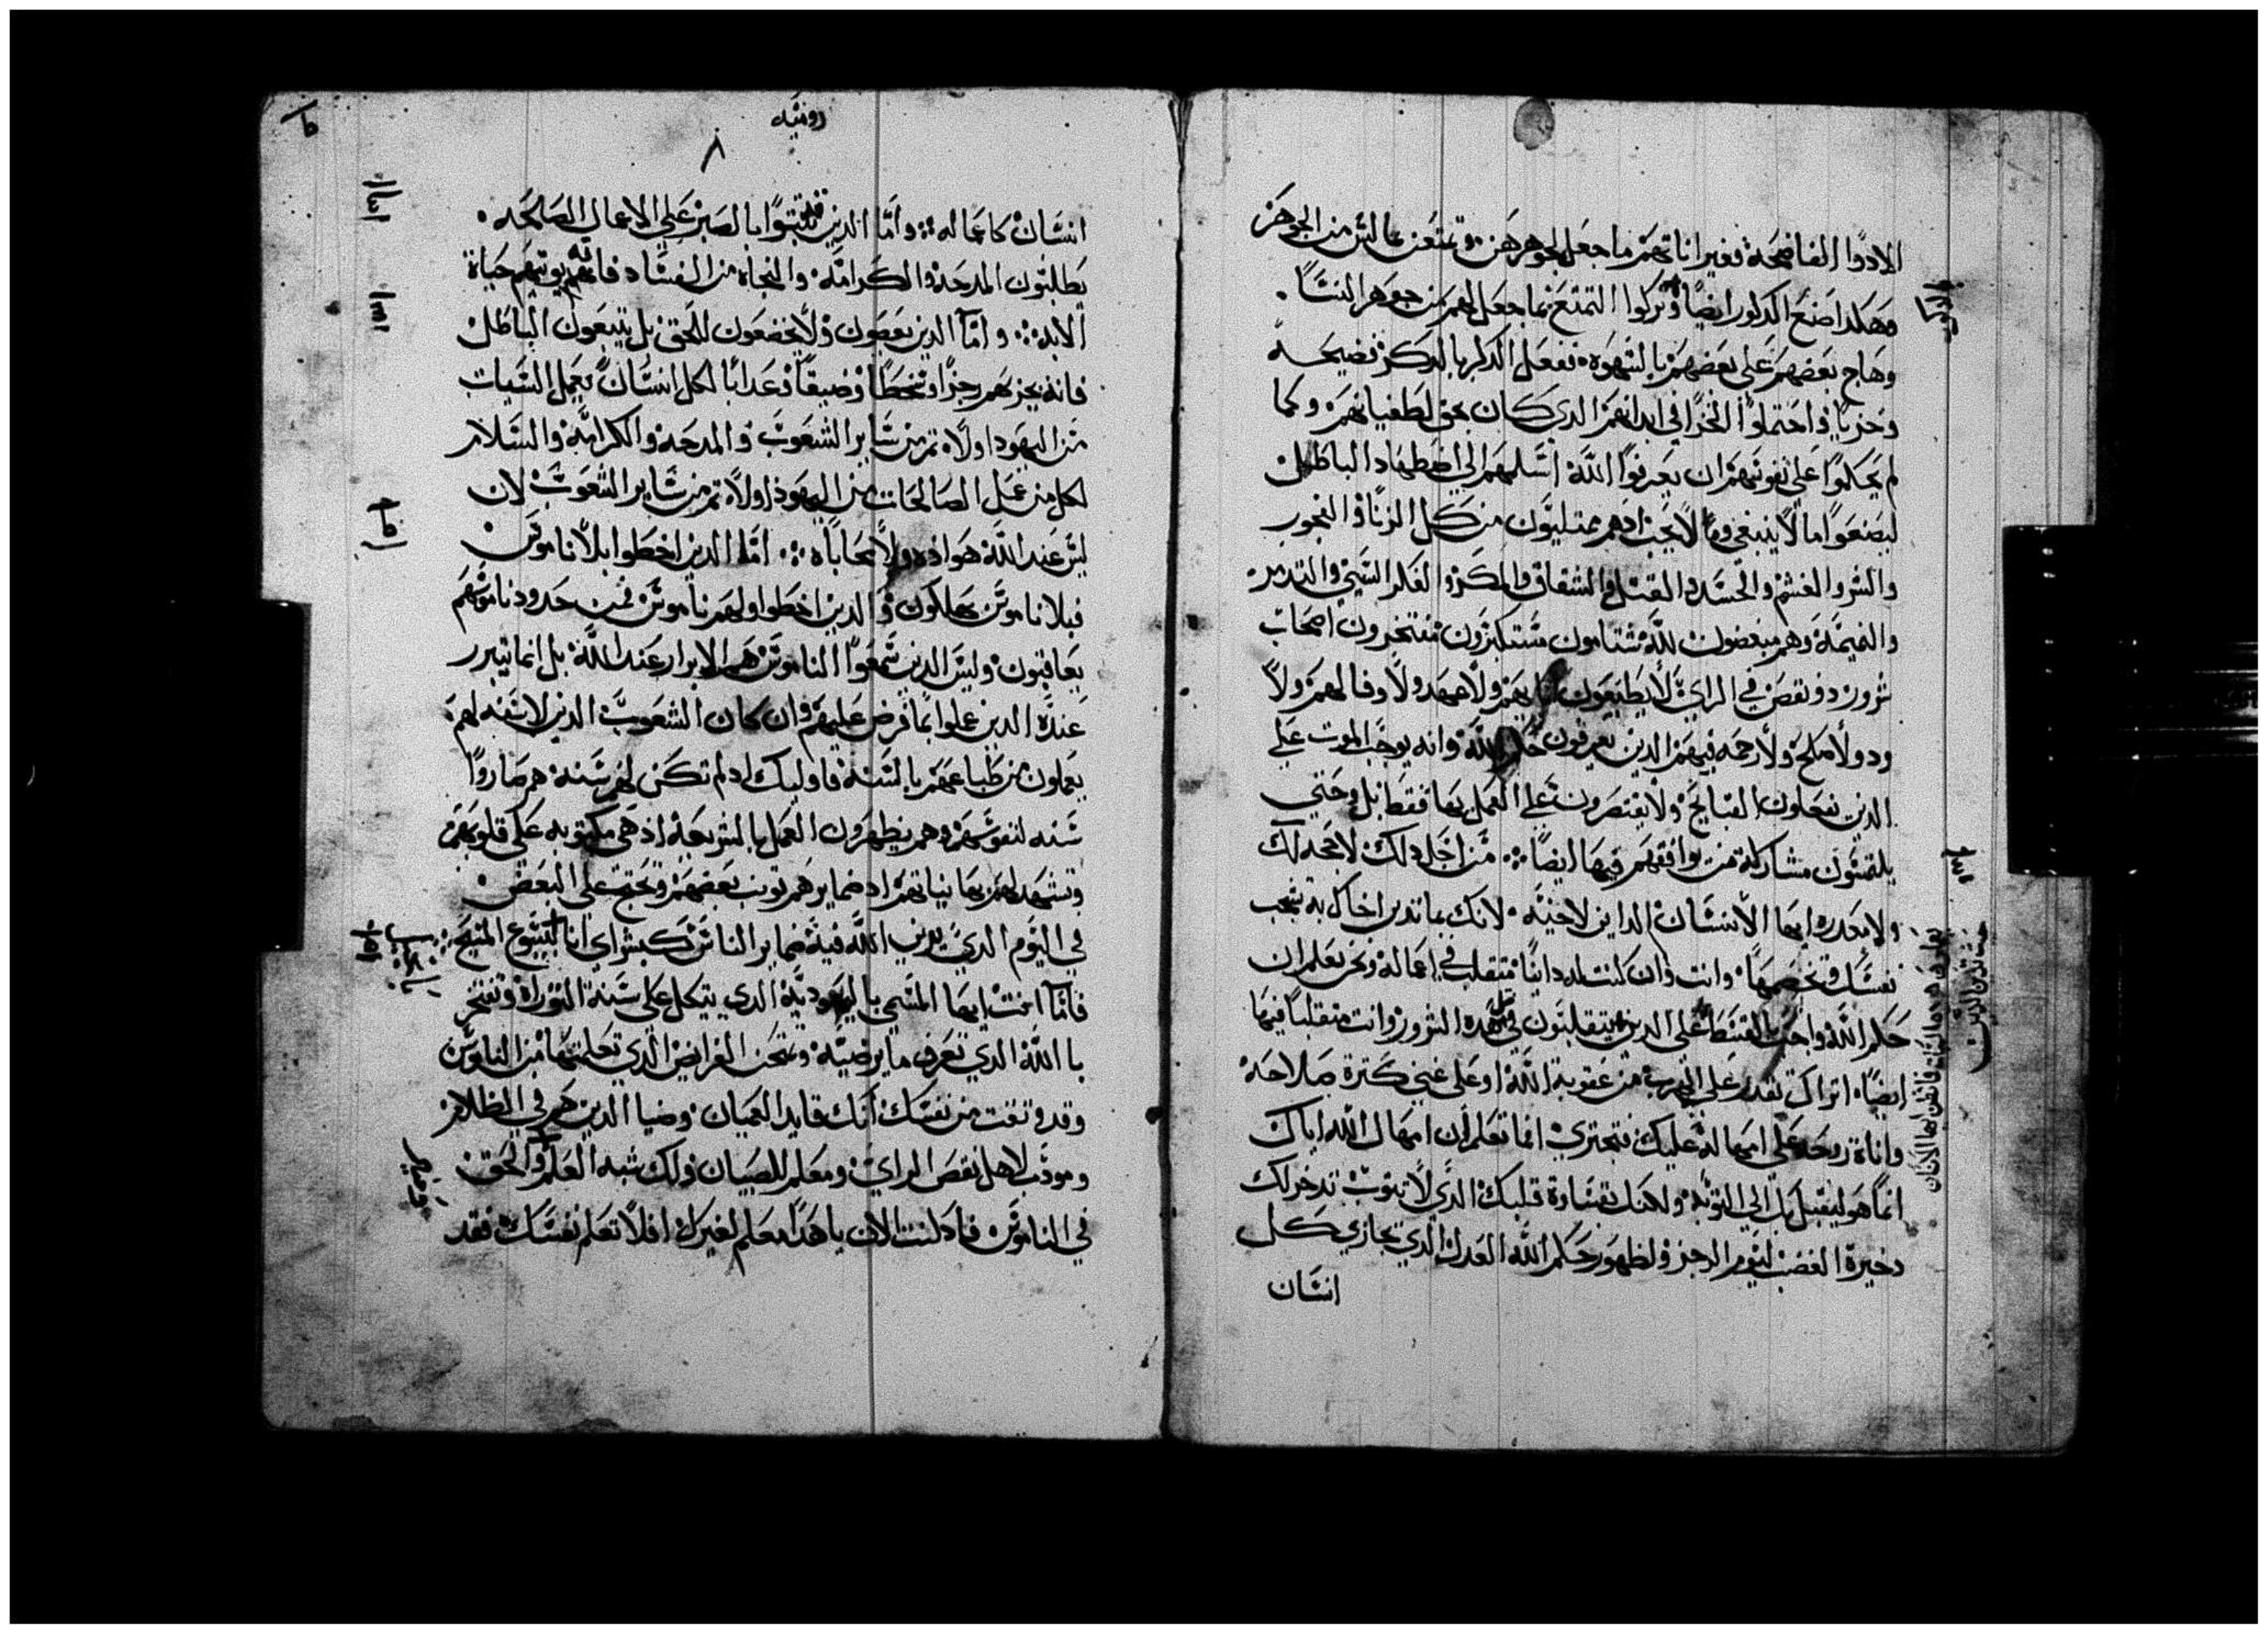 الادوا الفاضحة فغير اناثهم ما جعل لجوهرهن وتمتعن بما ليس من الجوهر
وهكدا صنع الدكور ايضا وتركوا التمتع بما جعل لهم من جوهر النسا
وهاج بعضهم على بعضهم بالشهوة ففعل الدكر بالدكر فضيحة
وخزيا واحتملوا الخزا في ابدانهم الدي كان بحق لطغيانهم وكما
لم يحكموا على نفوسهم ان يعرفوا الله اسلمهم الى اضطهاد الباطل
ليصنعوا ما لا ينبغي وما لا يجب ادهم ممتليون من كل الزنا والفجور
والشر والغشم والحسد والقتل والشقاق والمكر والفكر السيئ والتدمر
والنميمة وهم مبغضون لله شتامون مستكبرون مفتخرون اصحاب
شرور دوو نقص في الراي لا يطيعون ابايهم ولا عهد ولا وفا لهم ولا
ود ولا صلح ولا رحمة فيهم الدين يعرفون حكم الله وانه يوجب الموت على
الدين يفعلون القبايح ولا يقتصرون على العمل بها فقط بل وحتي
يلتمسون مشاركة من يوافقهم فيها ايضا من اجل دلك لا حجة لك
ولا معدرة ايها الانسان الداين لاخيه لانك بما تدين اخاك به تشجب
نفسك وتخصمها وانت وان كنت له داينا متقلب في اعماله ونحن نعلم ان
حكم الله واجب بالقسط على الدين يتقلبون في مثل هده الشرور وانت متقلبا فيها
ايضا اتراك تقدر على الهرب من عقوبة الله او على غني كثرة صلاحه
واناة روحه على امهاله عليك فتجتري اما تعلم ان امهال الله اياك
انما هو ليقبل بك الى التوبة ولكنك بقساوة قلبك الدي لا تتوب تدخر لك
دخيرة الغضب ليوم الرجز ولظهور حكم الله العدل الدي يجازي كل
انسان
رومية
٨
انسان كاعماله واما الدين يلتبثوا بالصبر على الاعمال الصالحه
يطلبون المدحة والكرامة والنجاة من الفساد فانه يوتيهم حياة
الابد واما الدين يعصون ولا يخضعون للحق بل يتبعون الباطل
فانه يجزيهم رجزا وسخطا وضيقا وعدابا لكل انسان يعمل السيات
من اليهود اولا ثم من ساير الشعوب والمدحة والكرامة والسلام
لكل من عمل الصالحات من اليهود اولا ثم من ساير الشعوب لان
ليس عند الله هواده ولا محاباه اما الدين اخطوا بلا ناموس
فبلا ناموس يهلكون والدين اخطوا ولهم ناموس فمن حدود ناموسهم
يعاقبون وليس الدين سمعوا الناموس هم الابرار عند الله بل انما يتبرر
عنده الدين عملوا بما فرض عليهم وان كان الشعوب الدين لا سنه لهم
يعملون من طباعهم بالسنة فاوليك اد لم تكن لهم سنة هم صاروا
سنه لنفوسهم وهم يظهرون العمل بالشريعة اد هي مكتوبه على قلوبهم
وتشهد لهم بها نياتهم اد ضمايرهم توبب بعضهم وتحتج على البعض
في اليوم الدي يدين الله فيه ضماير الناس كبشراي انا بيسوع المسيح
فاما انت ايها المتسمي باليهودية الدي يتكل على سنة التوراة وتفتخر
بالله الدي تعرف ما يرضيه وتمتحن الفرايض الدي تعلمتها من الناموس
وقد وتقت من نفسك انك قايد العميان وضيا الدين هم في الظلام
ومودب لاهل نقص الراي ومعلم للصبيان ولك شبه العلم والحق
في الناموس فاد انت الان يا هدا معلم لغيرك افلا تعلم نفسك فقد